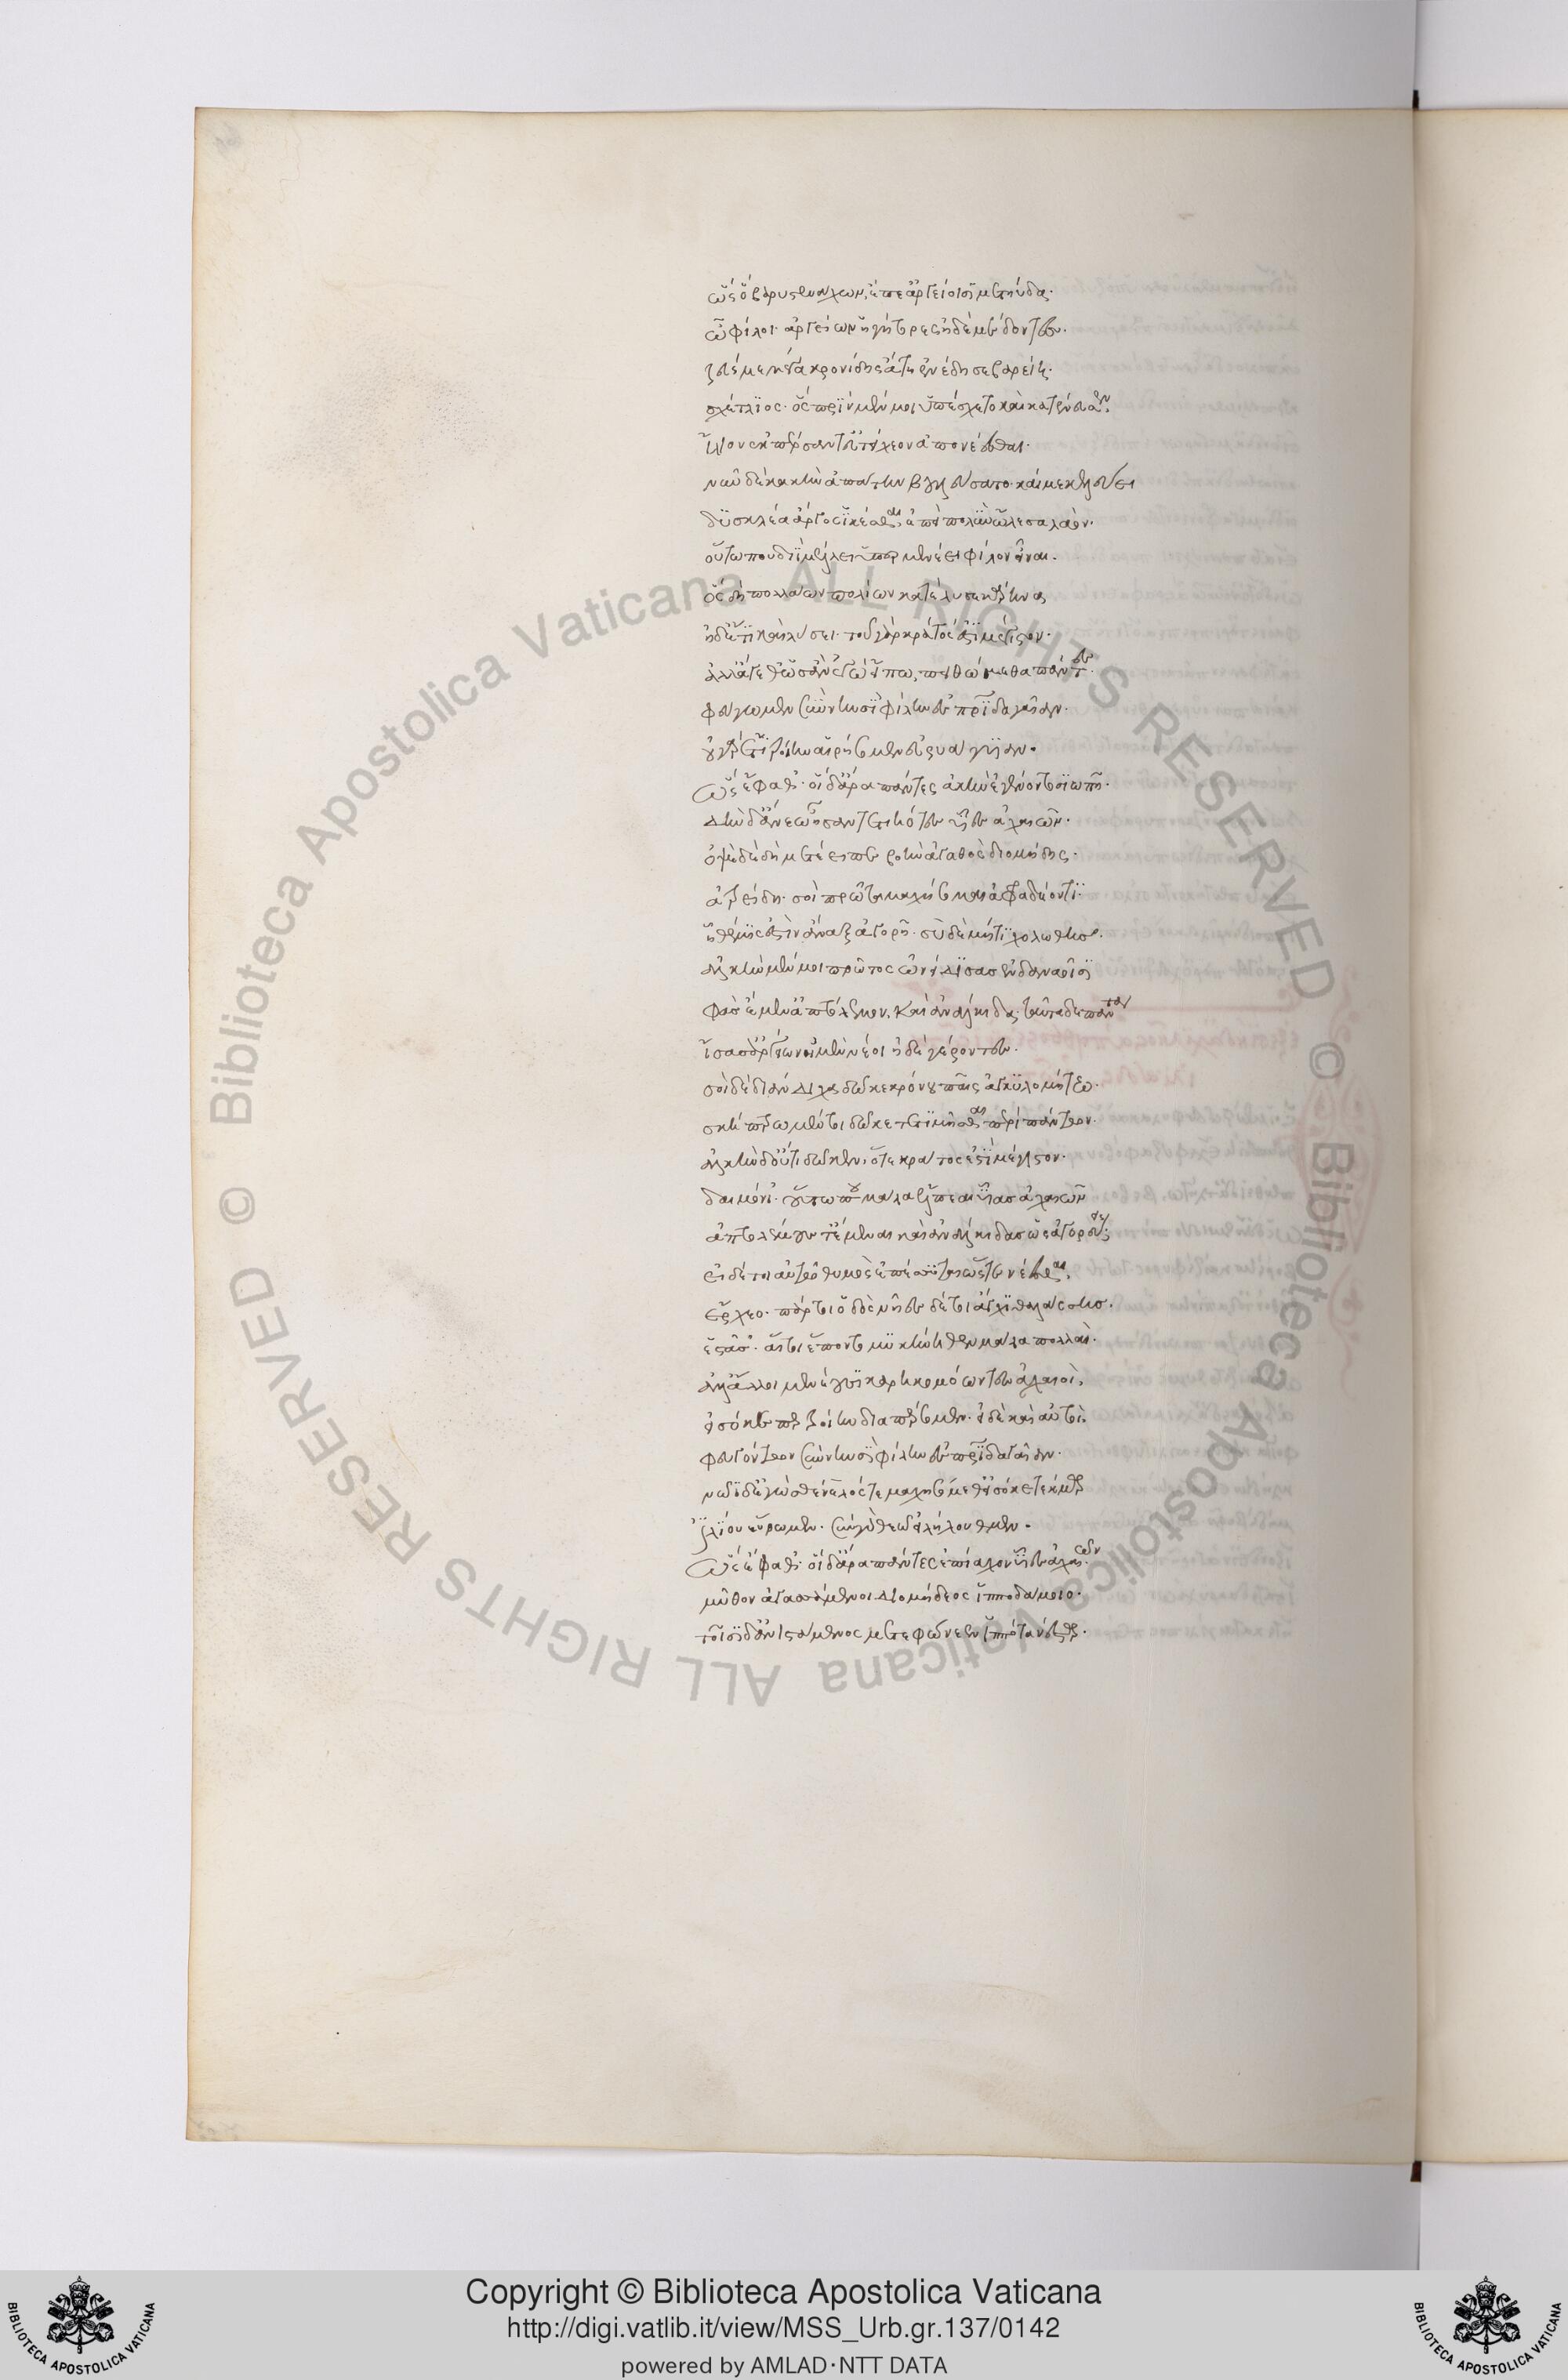 ὣς ὃ βαρυστενάχων, ἔπε ἀργείοισι μετηύδα·
ὦ φίλοι· ἀργείων ἡγήτορες ἠδὲ μέδοντες·
ζεύς με μέγα κρονίδης ἄτῃ ἐνέδησε βαρείῃ·
σχέτλιος· ὃς πρὶν μέν μοι ὑπέσχετο καὶ κατένευσεν,
ἴλιον ἐκπέρσαντ' εὐτείχεον ἀπονέεσθαι·
νῦν δὲ κακὴν ἀπάτην βουλεύσατο· καί με κελεύει
δυσκλέα ἄργος ἱκέσθαι, ἐπεὶ πολὺν ὤλεσα λαόν·
οὕτω που διῒ μέλλει ὑπερμενέϊ φίλον εἶναι·
ὃς δὴ πολλάων πολίων κατέλυσε κάρηνα
ἠδ' ἔτι καὶ λύσει· τοῦ γὰρ κράτος ἐστὶ μέγιστον·
ἀλλ' ἄγεθ' ὡς ἂν ἐγὼ εἴπω, πειθώμεθα πάντες·
φεύγωμεν σὺν νηυσὶ φίλην ἐς πατρίδα γαῖαν·
οὐ γὰρ ἔτι τροίην αἱρήσομεν εὐρυάγυιαν·
ὣς ἔφαθ'· οἱ δ' ἄρα πάντες ἀκὴν ἐγένοντο σιωπῇ·
δὴν δ' ἄνεω ἦσαν τετιηότες υἷες ἀχαιῶν·
ὀψὲ δὲ δὴ μετέειπε βοὴν ἀγαθὸς διομήδης·
ἀτρείδη· σοὶ πρῶτα μαχήσομαι ἀφραδέοντι·
ἣ θέμις ἐστὶν ἄναξ ἀγορῇ· σὺ δὲ μή τι χολωθῇς·
ἀλκὴν μέν μοι πρῶτος ὀνείδισας ἐν δαναοῖσι
φὰς ἔμεν ἀπτόλεμον, καὶ ἀνάλκιδα· ταῦτα δὲ πάντα
ἴσασ' ἀργείων οἱ μὲν νέοι ἠδὲ γέροντες·
σοὶ δὲ διάνδιχα δῶκε κρόνου παῖς ἀγκυλομήτεω·
σκήπτρῳ μέν τοι δῶκε τετιμῆσθαι περὶ πάντων·
ἀλκὴν δ' οὔ τοι δῶκεν, ὅ τε κράτος ἐστὶ μέγιστον·
δαιμόνι'· οὕτω που μάλα ἔλπεαι υἷας ἀχαιῶν
ἀπτολέμους τ' ἔμεναι καὶ ἀνάλκιδας ὡς ἀγορεύεις;
εἰ δέ τοι αὐτῷ θυμὸς ἐπέσσυται ὥς τε νέεσθαι,
ἔρχεο· πάρ τοι ὁδὸς νῆες δέ τοι ἄγχι θαλάσσης·
ἑστᾶσ'· αἵ τοι ἕποντο μυκήνηθεν μάλα πολλαί·
ἀλλ' ἄλλοι μενέουσι καρηκομόωντες ἀχαιοὶ,
εἰσόκε περ τροίην διαπέρσομεν· εἰ δὲ καὶ αὐτοὶ
φευγόντων σὺν νηυσὶ φίλην ἐς πατρίδα γαῖαν·
νῶϊ δ' ἐγὼ σθένελός τε μαχησόμεθ' εἰσόκε τέκμωρ
ἰλίου εὕρωμεν· σὺν γὰρ θεῷ εἰλήλουθμεν·
ὣς ἔφαθ'· οἱ δ' ἄρα πάντες ἐπίαχον υἷες ἀχαιῶν
μῦθον ἀγασσάμενοι διομήδεος ἱπποδάμοιο·
τοῖσι δ' ἀνιστάμενος μετεφώνεεν ἱππότα νέστωρ·
Copyright © Biblioteca Apostolica Vaticana
http://digi.vatlib.it/view/MSS_Urb.gr.137/0142
powered by AMLAD·NTT DATA